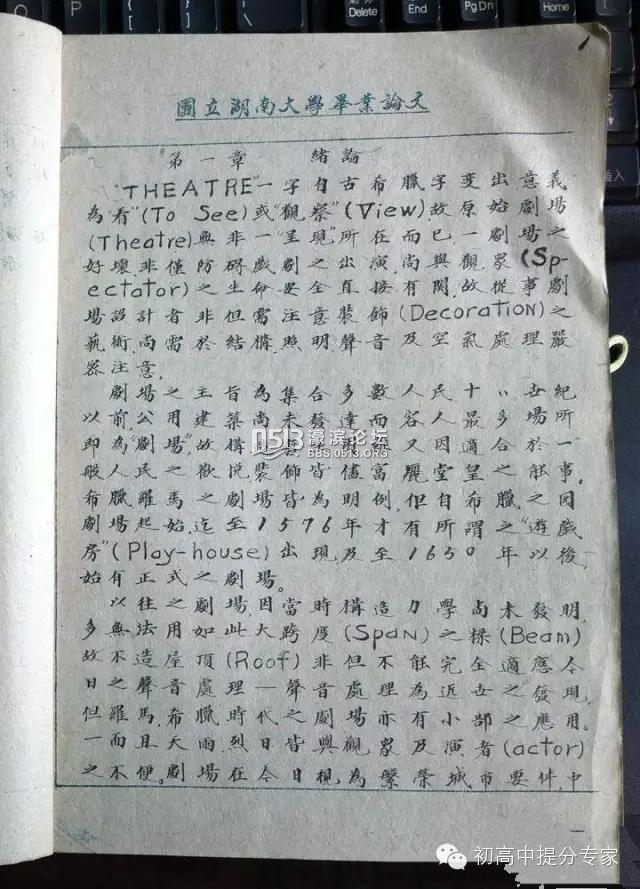 Delete
End
PgDn
Home
插入
國立湖南大學畢業論文
第一章 緒論
"THEATRE"一字自古希臘字变出意義
為看"(To See)或"觀察"(View)故原始劇場
(Theatre)無非一"呈現"所在而已.一劇場之
好壞.非僅防碍戲劇之出演,尚與觀衆(Sp-
ectator)之生命安全直接有関.故從事劇
場設計者非但需注意装飾(Decoration)之
藝術.尚需於結構.照明聲音及空氣處理嚴
密注意.
劇場之主旨為集合多數人民十八世紀
以前公用建築尚未發達而容人最多場所
即為"劇場".故構 又因適合於一
般人民之歡悅装飾皆儘富麗堂皇之能事.
希臘羅馬之劇場皆為明例.但自希臘之因
劇場起始.迄至1576年才有所謂之"遊戲
房"(Play-house)出現及至1650年以後,
始有正式之劇場。
以往之劇場.因當時構造力學尚未發明,
多無法用如此大跨度(Span)之樑(Beam)
故不造屋頂(Roof)非但不能完全適應今
日之聲音處理—聲音處理為近世之發現,
但羅馬.希臘時代之劇場亦有小部之應用。
一而且天雨.烈日皆與觀衆及演者(actor)
之不便.劇場在今日視為繁榮城市要件.中
一
0513 濠滨论坛
BBS.0513.ORG
初高中提分专家